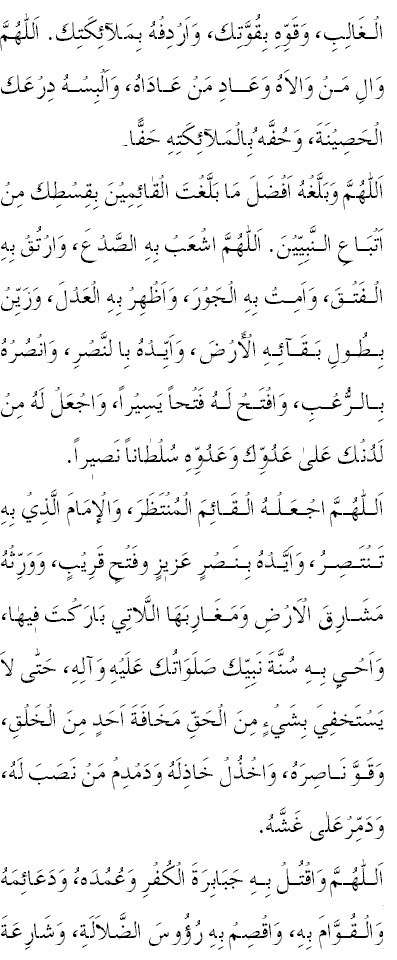 الْـغَالِبِ، وَقَوِّهِ بِقُوَّتِك، وَاَرْدِفْهُ بِمَلآئِكَتِك. اَللّٰهُمَّ
وَالِ مَـنْ وَالاَهُ وَعَـادِ مَنْ عَـادَاهُ، وَاَلْبِسْـهُ دِرْعَك
الْحَصِيْنَةَ، وَحُفَّه ُبِالْمَلآئِكَتِهِ حَفًّا۔
اَللّٰهُمَّ وَبَلِّغْهُ اَفْضَلَ مَا بَلَّغْتَ الْقَائِمِيْنَ بِقِسْطِكَ مِنْ
اَتْبَـاعِ الـنَّبِيِّيْنَ. اَللّٰهُمَّ اشْعَبْ بِهِ الصَّدْعَ، وَارْتُقْ بِهِ
الْـفَتْـقَ، وَاَمِـتْ بِهِ الْجَوْرَ، وَاَظْهِرْ بِهِ الْعَدْلَ، وَزَيِّنْ
بِـطُولِ بَـقَـآئِـهِ الْأَرْضَ، وَاَيِّـدْهُ بِا لنَّصْرِ، وَانْصُرْهُ
بِـالـرُّعْـبِ، وَافْتَـحْ لَـهُ فَتْـحاً يَسِيْراً، وَاجْعَلْ لَهُ مِنْ
لَدُنْكَ عَلىٰ عَدُوِّكَ وَعَدُوِّهِ سُلْطٰاناً نَصِيْراً.
اَلـلّٰهُـمَّ اجْـعَـلْـهُ الْـقَـائِمَ الْمُنْتَظَرَ، وَالْإِمَامَ الَّذِيْ بِهِ
تَـنْـتَـصِـرُ، وَاَيَّـدْهُ بِـنَـصْرٍ عَزِيزٍ وَفَتْحٍ قَرِيْبٍ، وَوَرِّثْهُ
مَشَـارِقَ الْاَرْضِ وَمَغَـارِبَهَا اللَّاتِي بَارَكْتَ فِيهٰا،
وَاَحْـيِ بِـهِ سُنَّةَ نَبِيِّك صَلَوَاتُك عَلَيْهِ وَآلِهِ، حَتّٰى لاَ
يَسْتَخْفِيَ بِشَيْءٍ مِنَ الْحَقِّ مَخَافَةَ اَحَدٍ مِنَ الْخَلْقِ،
وَقَـوَّ نَـاصِرَهُ، وَاخْذُلْ خَاذِلَهُ وَدَمْدِمْ مَنْ نَصَبَ لَهُ،
وَدَمِّرْ عَلٰى غَشَّهُ.
اَلـلّٰهُـمَّ وَاقْتُـلْ بِـهِ جَبَابِرَةَ الْكُفْرِ وَعُمُدَهُ، وَدَعَائِمَهُ
وَالْـقُـوَّامَ بِهِ، وَاقْصِمْ بِهِ رُؤُوسَ الضَّلاَلَةِ، وَشَارِعَةَ